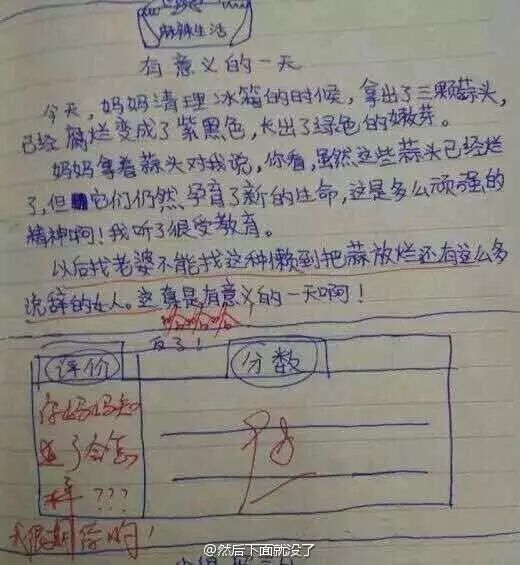 麻辣生活
有意义的一天
今天,妈妈清理冰箱的时候,拿出了三颗蒜头,
已经腐烂变成了紫黑色,长出了绿色的嫩芽。
妈妈拿着蒜头对我说,你看,虽然这些蒜头已经烂
了,但它们仍然孕育了新的生命,这是多么顽强的
精神啊!我听了很受教育。
以后找老婆不能找这种懒到把蒜放烂还有这么多
说辞的女人。这真是有意义的一天啊!
哈哈哈
反了!
评价
分数
你妈妈知
道了会怎
样???
@然后下面就没了